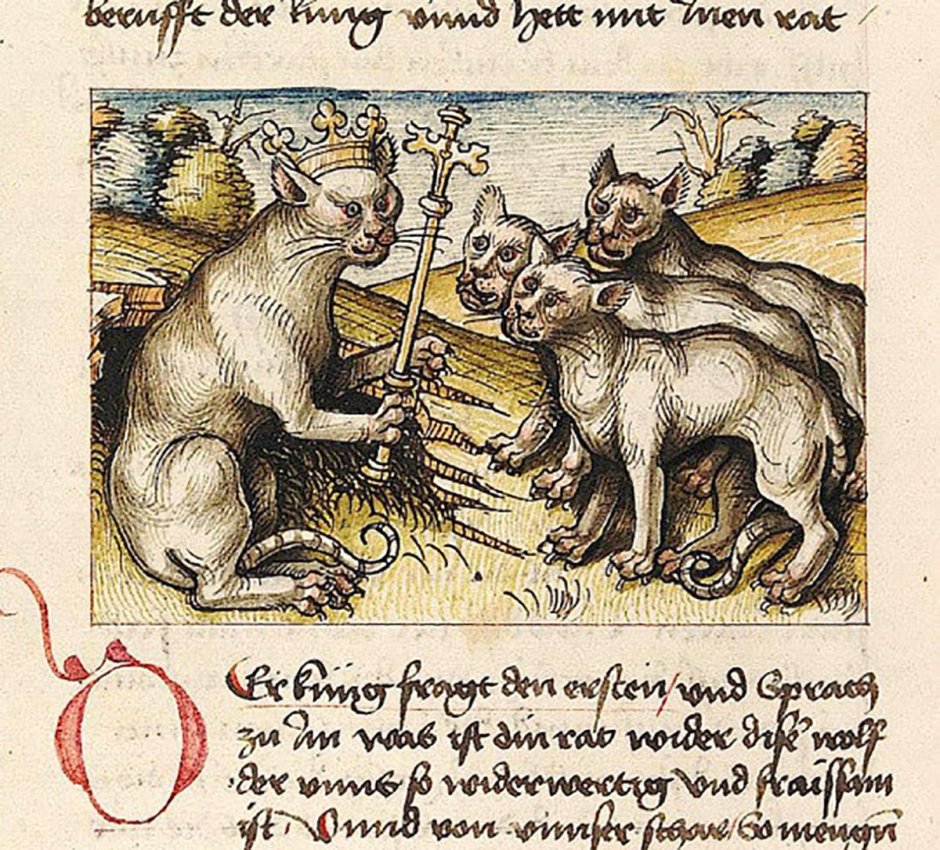 berufft der küng vnnd hett mit Inen rat
Der küng fragt den ersten / vnd Sprach
zu Im was ist din rat wider dise wolf
der vnns so widerwertig vnd fraissam
ist / Vnnd von vnnser schar / So mengñ